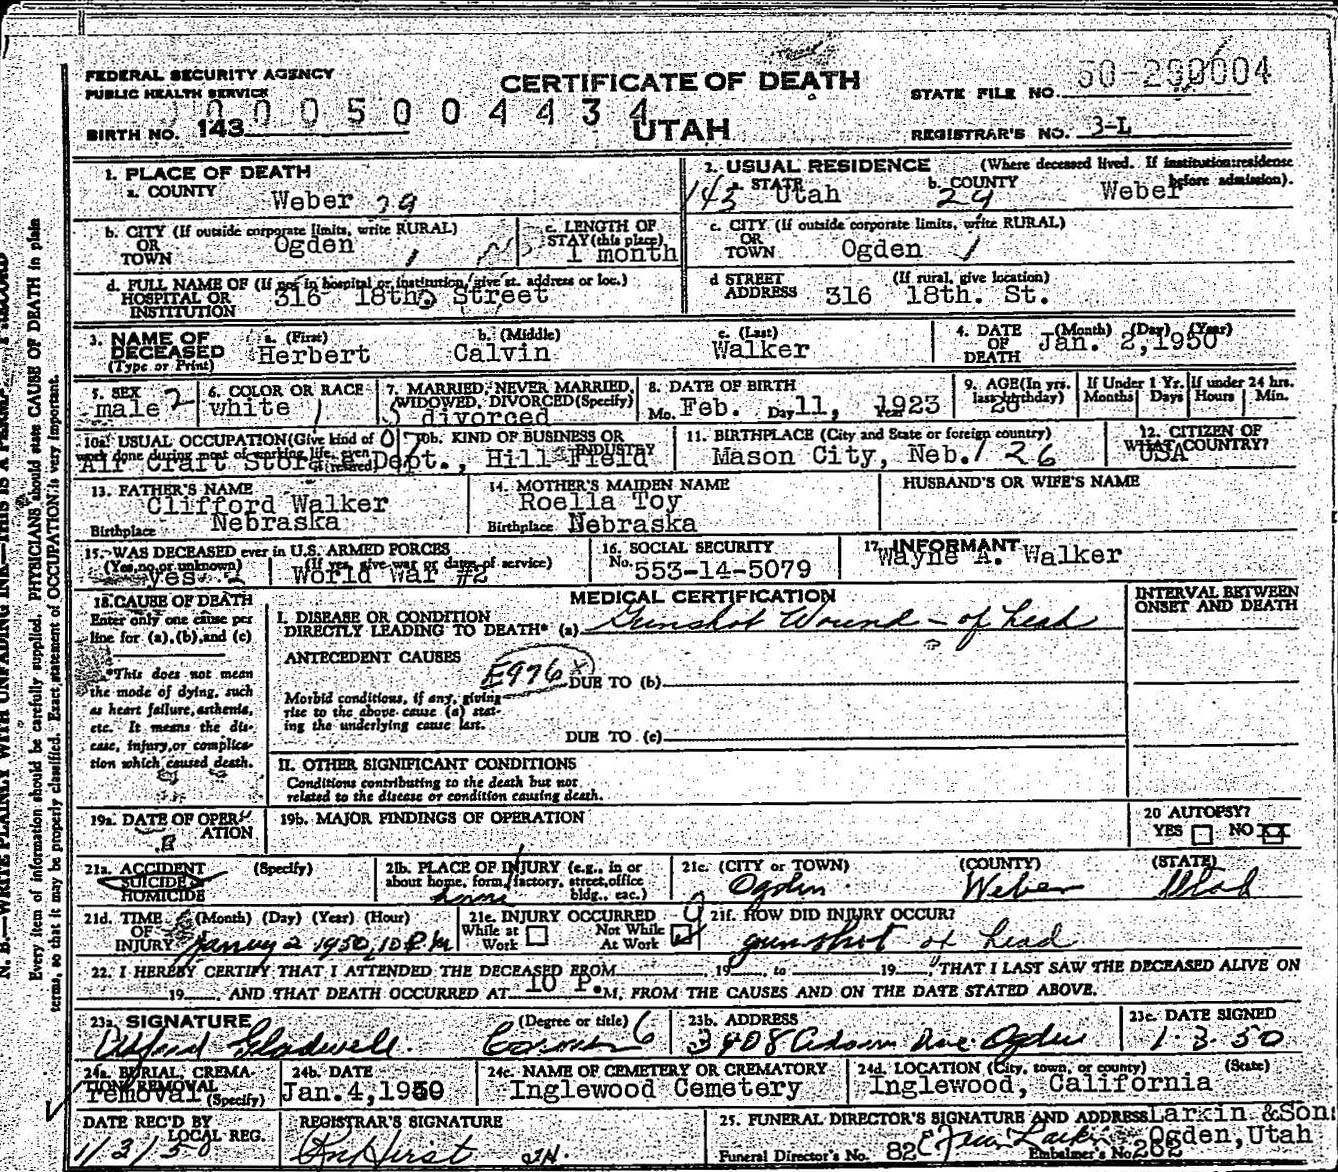 FEDERAL SECURITY AGENCY
PUBLIC HEALTH SERVICE
CERTIFICATE OF DEATH
UTAH
0005004434
STATE FILE NO.
BIRTH NO. 143
REGISTRAR'S NO. 3-L
1. PLACE OF DEATH
a. COUNTY Weber 29
2. USUAL RESIDENCE (Where deceased lived. If institution: residense before admission).
143 a. STATE Utah 29 b. COUNTY Weber
b. CITY (If outside corporate limits, write RURAL) OR TOWN Ogden 1
c. LENGTH OF STAY (this place) 1 month
c. CITY (If outside corporate limits, write RURAL) OR TOWN Ogden 1
d. FULL NAME OF (If not in hospital or institution, give st. address or loc.) HOSPITAL OR INSTITUTION 316 18th. Street
d STREET ADDRESS (If rural, give location) 316 18th. St.
3. NAME OF DECEASED (Type or Print)
a. (First) Herbert
b. (Middle) Calvin
c. (Last) Walker
4. DATE OF DEATH (Month) (Day) (Year) Jan. 2,1950
5. SEX male 2
6. COLOR OR RACE white 1
7. MARRIED, NEVER MARRIED, WIDOWED, DIVORCED (Specify) 5 divorced
8. DATE OF BIRTH Mo. Feb. Day 11, Year 1923
9. AGE (In yrs. last birthday) 26
If Under 1 Yr. Months Days
If under 24 hrs. Hours Min.
10a. USUAL OCCUPATION (Give kind of work done during most of working life, even if retired) Air Craft Storage Dept.,
10b. KIND OF BUSINESS OR INDUSTRY Hill Field
11. BIRTHPLACE (City and State or foreign country) Mason City, Neb. 126
12. CITIZEN OF WHAT COUNTRY? USA
13. FATHER'S NAME Clifford Walker
Birthplace Nebraska
14. MOTHER'S MAIDEN NAME Roella Toy
Birthplace Nebraska
HUSBAND'S OR WIFE'S NAME
15. WAS DECEASED ever in U.S. ARMED FORCES (Yes, no, or unknown) yes 2
(If yes, give war or dates of service) World War #2
16. SOCIAL SECURITY No. 553-14-5079
17. INFORMANT Wayne A. Walker
18. CAUSE OF DEATH
Enter only one cause per line for (a), (b), and (c)
*This does not mean the mode of dying, such as heart failure, asthenia, etc. It means the disease, injury, or complication which caused death.
MEDICAL CERTIFICATION
INTERVAL BETWEEN ONSET AND DEATH
I. DISEASE OR CONDITION DIRECTLY LEADING TO DEATH* (a) Gunshot Wound - of head
ANTECEDENT CAUSES
E976 x
DUE TO (b)
Morbid conditions, if any, giving rise to the above cause (a) stating the underlying cause last.
DUE TO (c)
II. OTHER SIGNIFICANT CONDITIONS
Conditions contributing to the death but not related to the disease or condition causing death.
19a. DATE OF OPERATION
19b. MAJOR FINDINGS OF OPERATION
20 AUTOPSY?
YES NO XX
21a. ACCIDENT (Specify)
SUICIDE
HOMICIDE
21b. PLACE OF INJURY (e.g., in or about home, form, factory, street, office bldg., eac.) home
21c. (CITY or TOWN) (COUNTY) (STATE)
Ogden Weber Utah
21d. TIME OF INJURY (Month) (Day) (Year) (Hour) January 2 1950, 10 P.M
21e. INJURY OCCURRED
While at Work
Not While At Work
21f. HOW DID INJURY OCCUR?
gunshot of head
22. I HEREBY CERTIFY THAT I ATTENDED THE DECEASED FROM , 19 , to 19 , THAT I LAST SAW THE DECEASED ALIVE ON
19 , AND THAT DEATH OCCURRED AT 10 P.M. FROM THE CAUSES AND ON THE DATE STATED ABOVE.
23a. SIGNATURE (Degree or title) 6
Gladwell. Coroner
23b. ADDRESS
3408 Adams Ave. Ogden
23c. DATE SIGNED
1.3.50
24a. BURIAL, CREMATION, REMOVAL (Specify) removal
24b. DATE Jan.4,1950
24c. NAME OF CEMETERY OR CREMATORY Inglewood Cemetery
24d. LOCATION (City, town, or county) (State) Inglewood, California
DATE REC'D BY LOCAL REG. 1/3/50
REGISTRAR'S SIGNATURE
Hirst
25. FUNERAL DIRECTOR'S SIGNATURE AND ADDRESS Larkin & Sons
Larkin Ogden, Utah
Funeral Director's No. 82 Embalmer's No 262
N. B.—WRITE PLAINLY WITH UNFADING INK—THIS IS A PERMANENT RECORD
Every item of information should be carefully supplied. PHYSICIANS should state CAUSE OF DEATH in plain
terms, so that it may be properly classified. Exact statement of OCCUPATION is very important.